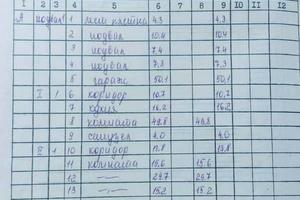 1 2 3 4 5 6 7 8 9 10 11 12
А подвал 1 4.3 4.3
2 подвал 10.4 10.4
3 подвал 7.4 7.4
4 подвал 7.3 7.3
5 гараж 50,1 50,1
I 1 6 коридор 10.7 10.7
7 кухня 16.2 16.2
8 комната 48.8 48.8
9 санузел 4.0 4.0
II 1 10 коридор 13.8
11 комната 15.6 15.6
12 —"— 26.7
13 —"— 15.2 15.2